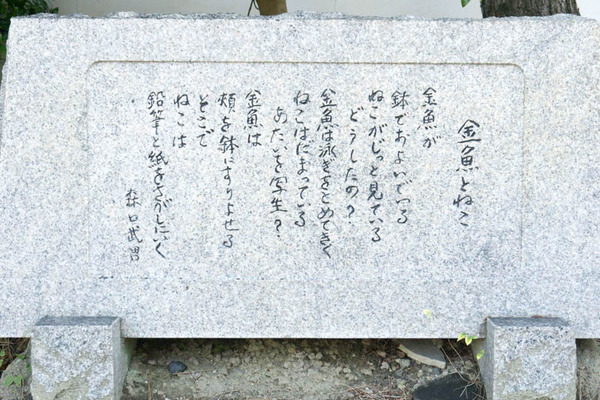 金魚とねこ
金魚が
鉢でおよいでいる
ねこがじっと見ている
どうしたの?
金魚は泳ぎをとめてきく
ねこはだまっている
あたいを写生?
金魚は
頬を鉢にすりよせる
そこで
ねこは
鉛筆と紙をさがしにいく
森口武男